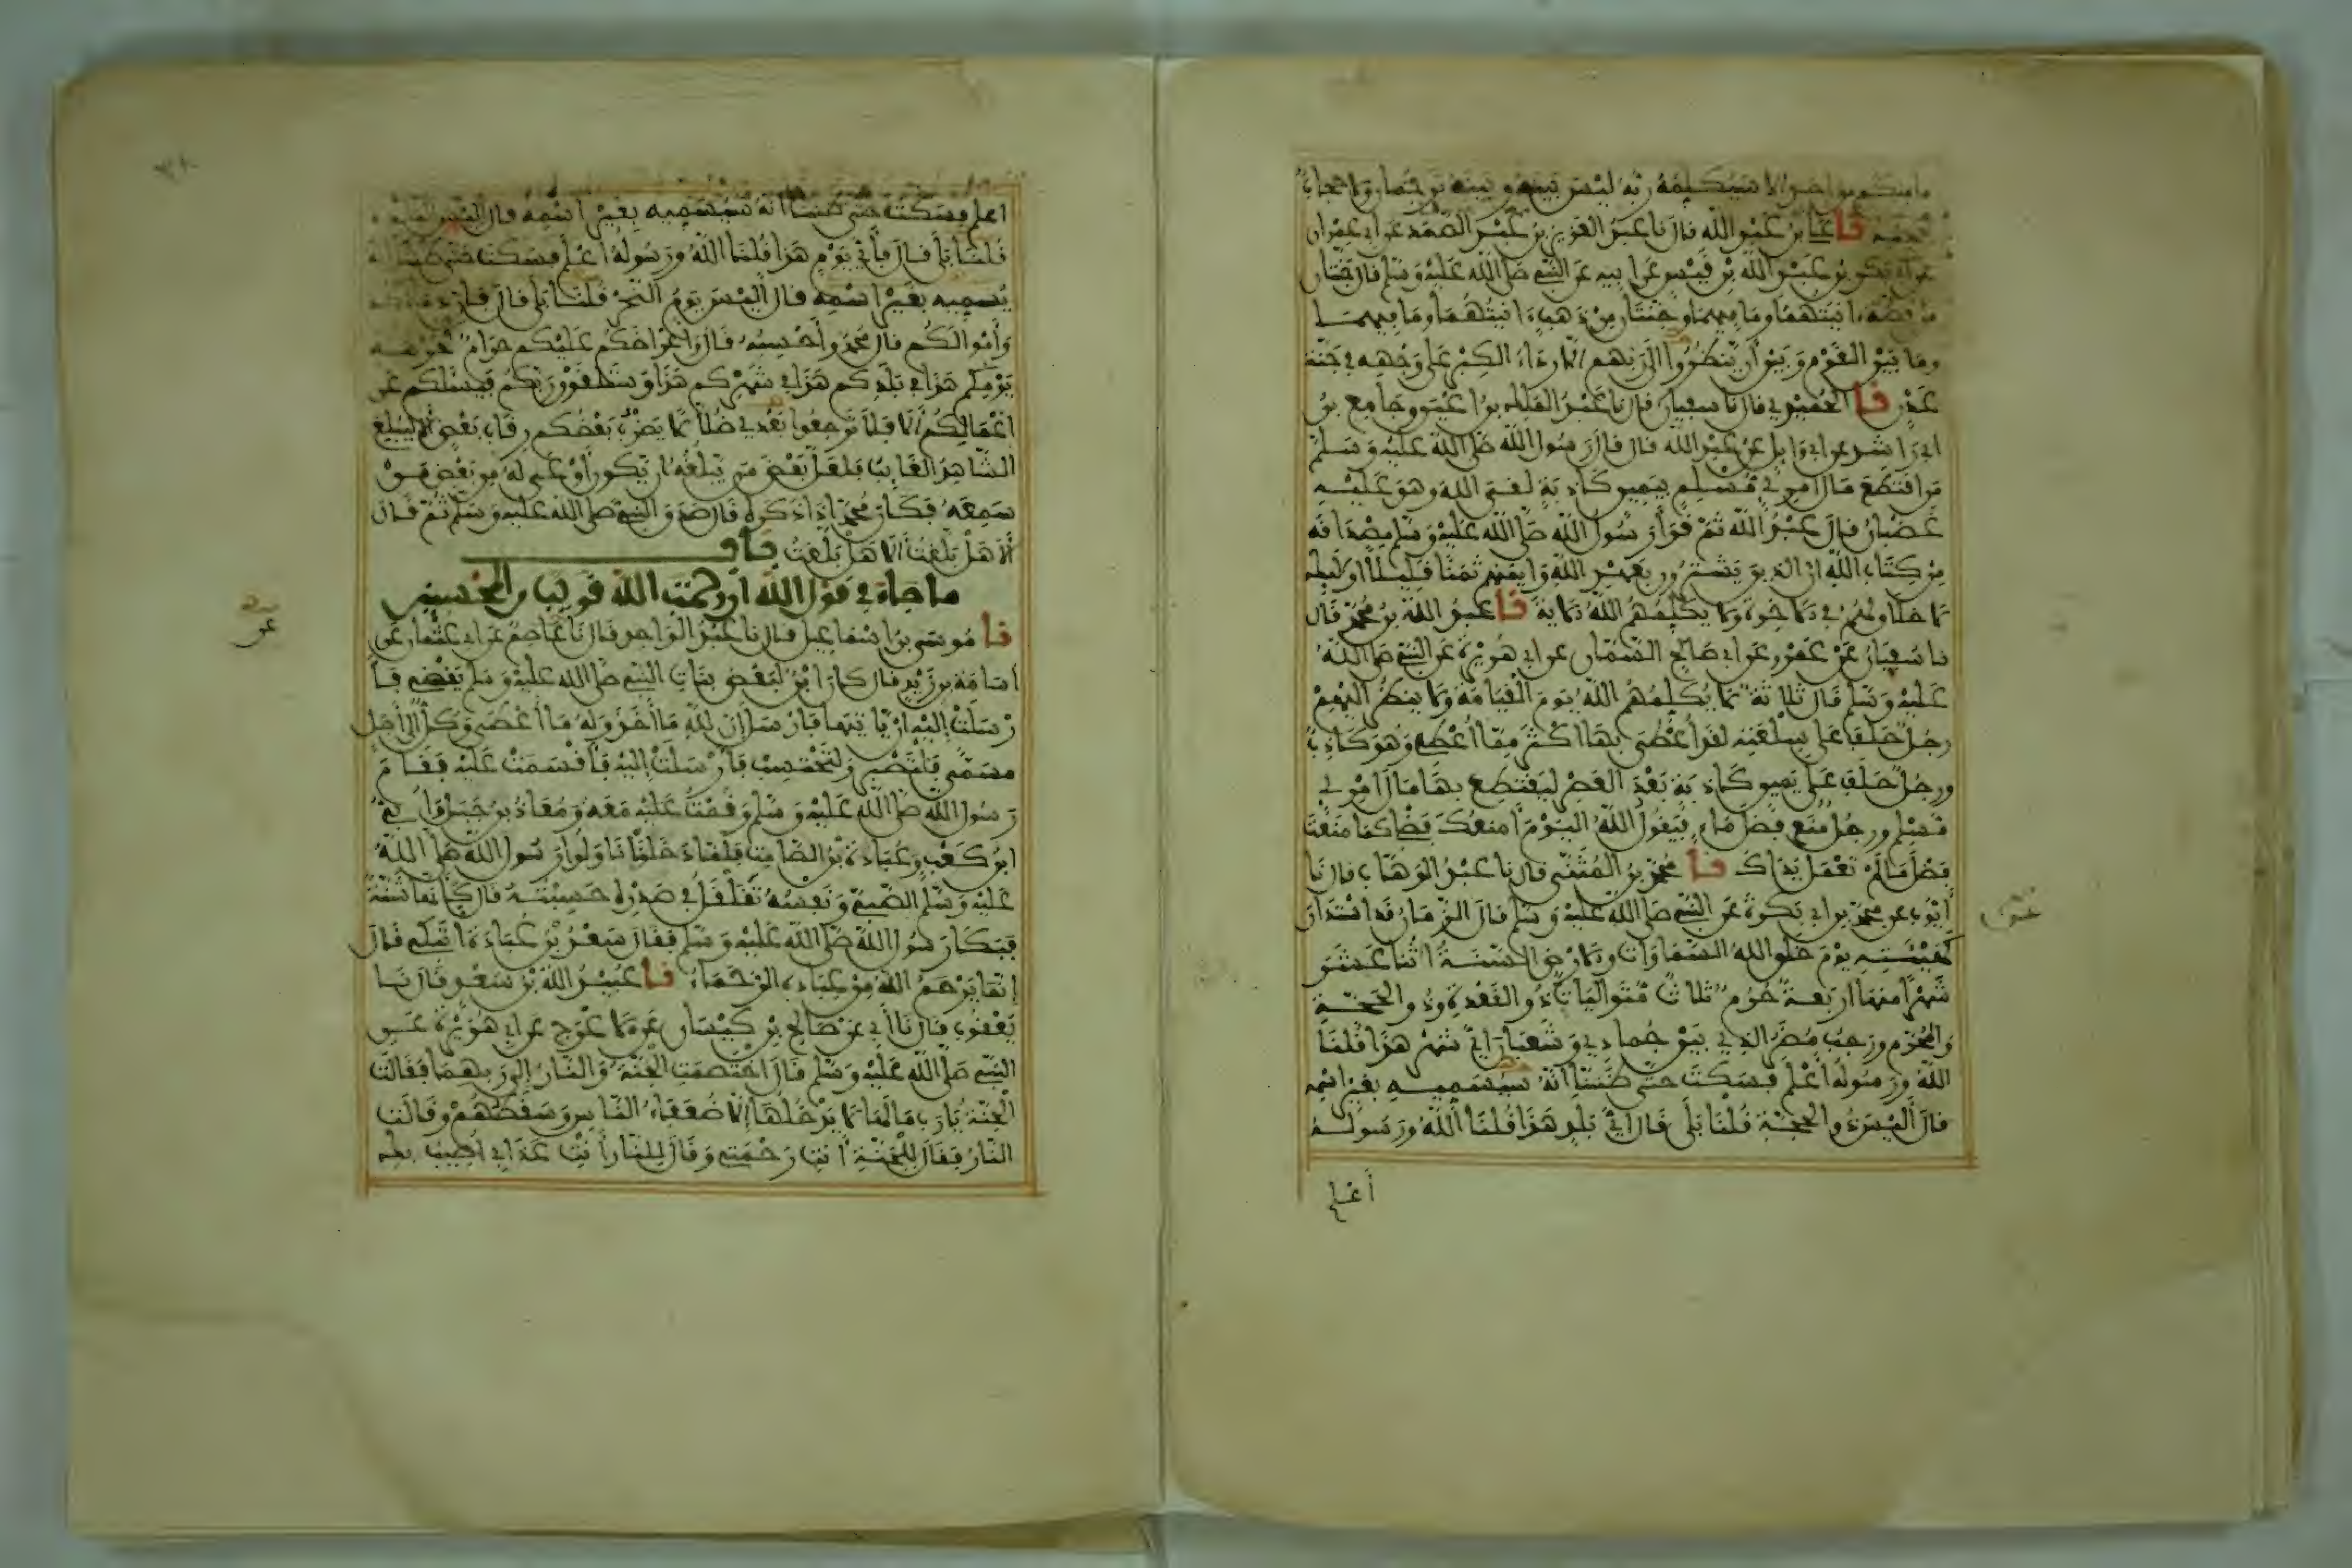 ما منكم من احد الا سيكلمه ربه ليس بينه وبينه ترجمان ولا حجاب
يحجبه نا علي بن عبد الله قال نا عبد العزيز بن عبد الصمد عن ابي عمران
عن ابي بكر بن عبد الله بن قيس عن ابيه عن النبي صلى الله عليه وسلم قال جنتان
من فضة ءانيتهما وما فيهما وجنتان من ذهب ءانيتهما وما فيهما
وما بين القوم وبين أن ينظروا إلى ربهم الا رداء الكبر على وجهه في جنة
عدن نا الحميدي قال نا سفيان قال نا عبد الملك بن اعين وجامع بن
ابي راشد عن ابي وايل عن عبد الله قال قال رسول الله صلى الله عليه وسلم
من اقتطع مال امرئ مسلم بيمين كاذبة لقي الله وهو عليه
غضبان قال عبد الله ثم قرأ رسول الله صلى الله عليه وسلم مصداقه
من كتاب الله ان الذين يشترون بعهد الله وأيمنهم ثمنا قليلا اوليك
لا خلاق لهم في الاخرة ولا يكلمهم الله الاية نا عبد الله بن محمد قال
نا سفيان عن عمرو عن ابي صالح السمان عن ابي هريرة عن النبي صلى الله
عليه وسلم قال ثلاثة لا يكلمهم الله يوم القيامة ولا ينظر اليهم
رجل حلف على سلعته لقد أعطي بها اكثر مما أعطي وهو كاذب
ورجل حلف على يمين كاذبة بعد العصر ليقتطع بها مال امرئ
مسلم ورجل منع فضل ماء فيقول الله اليوم أمنعك فضلي كما منعت
فضل ما لم تعمل يداك نا محمد بن المثنى قال نا عبد الوهاب قال نا
أيوب عن محمد عن ابي بكرة عن النبي صلى الله عليه وسلم قال الزمان قد استدار
كهيئته يوم خلق الله السماوات والارض السنة اثنا عشر
شهرا منها اربعة حرم ثلاث متواليات ذو القعدة وذو الحجة
والمحرم ورجب مضر الذي بين جمادى وشعبان اي شهر هذا قلنا
الله ورسوله أعلم فسكت حتى ظننا انه سيسميه بغير اسمه
قال أليس ذو الحجة قلنا بلى قال اي بلد هذا قلنا الله ورسوله
أعلم
اعلم فسكت حتى ظننا انه سيسميه بغير اسمه قال أليس البلدة
قلنا بلى قال فأي يوم هذا قلنا الله ورسوله أعلم فسكت حتى ظننا انه
يسميه بغير اسمه قال أليس يوم النحر قلنا بلى قال فان دماءكم
وأموالكم قال محمد وأحسبه قال وأعراضكم عليكم حرام كحرمة
يومكم هذا في بلدكم هذا في شهركم هذا وستلقون ربكم فيسلكم عن
أعمالكم ألا فلا ترجعوا بعدي ضلالا يضرب بعضكم رقاب بعض ألا ليبلغ
الشاهد الغايب فلعل بعض من يبلغه ان يكون أوعى له من بعض من
سمعه فكان محمد اذا ذكره قال صدق النبي صلى الله عليه وسلم ثم قال
ألا هل بلغت ألا هل بلغت باب
ما جاء في قول الله ان رحمت الله قريب من المحسنين
نا موسى بن اسماعيل قال نا عبد الواحد قال نا عاصم عن ابي عثمان عن
أسامة بن زيد قال كان ابن لبعض بنات النبي صلى الله عليه وسلم يقضي فأ
رسلت إليه ان يأتيها فأرسل إن لله ما أخذ وله ما أعطى وكل إلى أجل
مسمى فلتصبر ولتحتسب فأرسلت إليه فأقسمت عليه فقام
رسول الله صلى الله عليه وسلم وقمت معه ومعاذ بن جبل وأبي
ابن كعب وعبادة بن الصامت فلما دخلنا ناولوا رسول الله صلى الله
عليه وسلم الصبي ونفسه تقلقل في صدره حسبته قال كأنها شنة
فبكى رسول الله صلى الله عليه وسلم فقال سعد بن عبادة اتبكي فقال
إنما يرحم الله من عباده الرحماء نا عبيد الله بن سعد قال نا
يعقوب قال نا أبي عن صالح بن كيسان عن الاعرج عن ابي هريرة عن
النبي صلى الله عليه وسلم قال اختصمت الجنة والنار إلى ربهما فقالت
الجنة يا رب ما لها لا يدخلها إلا ضعفاء الناس وسقطهم وقالت
النار فقال للجنة أنت رحمتي وقال للنار أنت عذابي أصيب بك